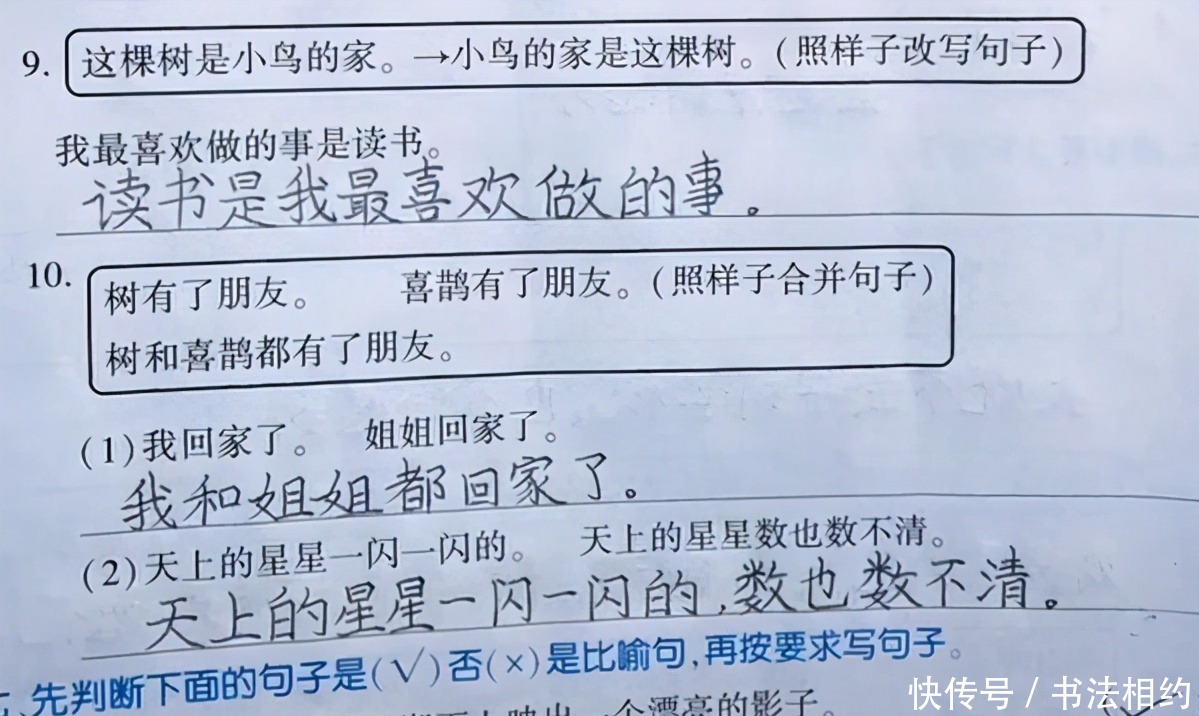 9. 这棵树是小鸟的家。→小鸟的家是这棵树。(照样子改写句子)
我最喜欢做的事是读书。
读书是我最喜欢做的事。
10. 树有了朋友。 喜鹊有了朋友。(照样子合并句子)
树和喜鹊都有了朋友。
(1)我回家了。 姐姐回家了。
我和姐姐都回家了。
(2)天上的星星一闪一闪的。 天上的星星数也数不清。
天上的星星一闪一闪的,数也数不清。
先判断下面的句子是(√)否(×)是比喻句,再按要求写句子。
一个漂亮的影子。
快传号 / 书法相约